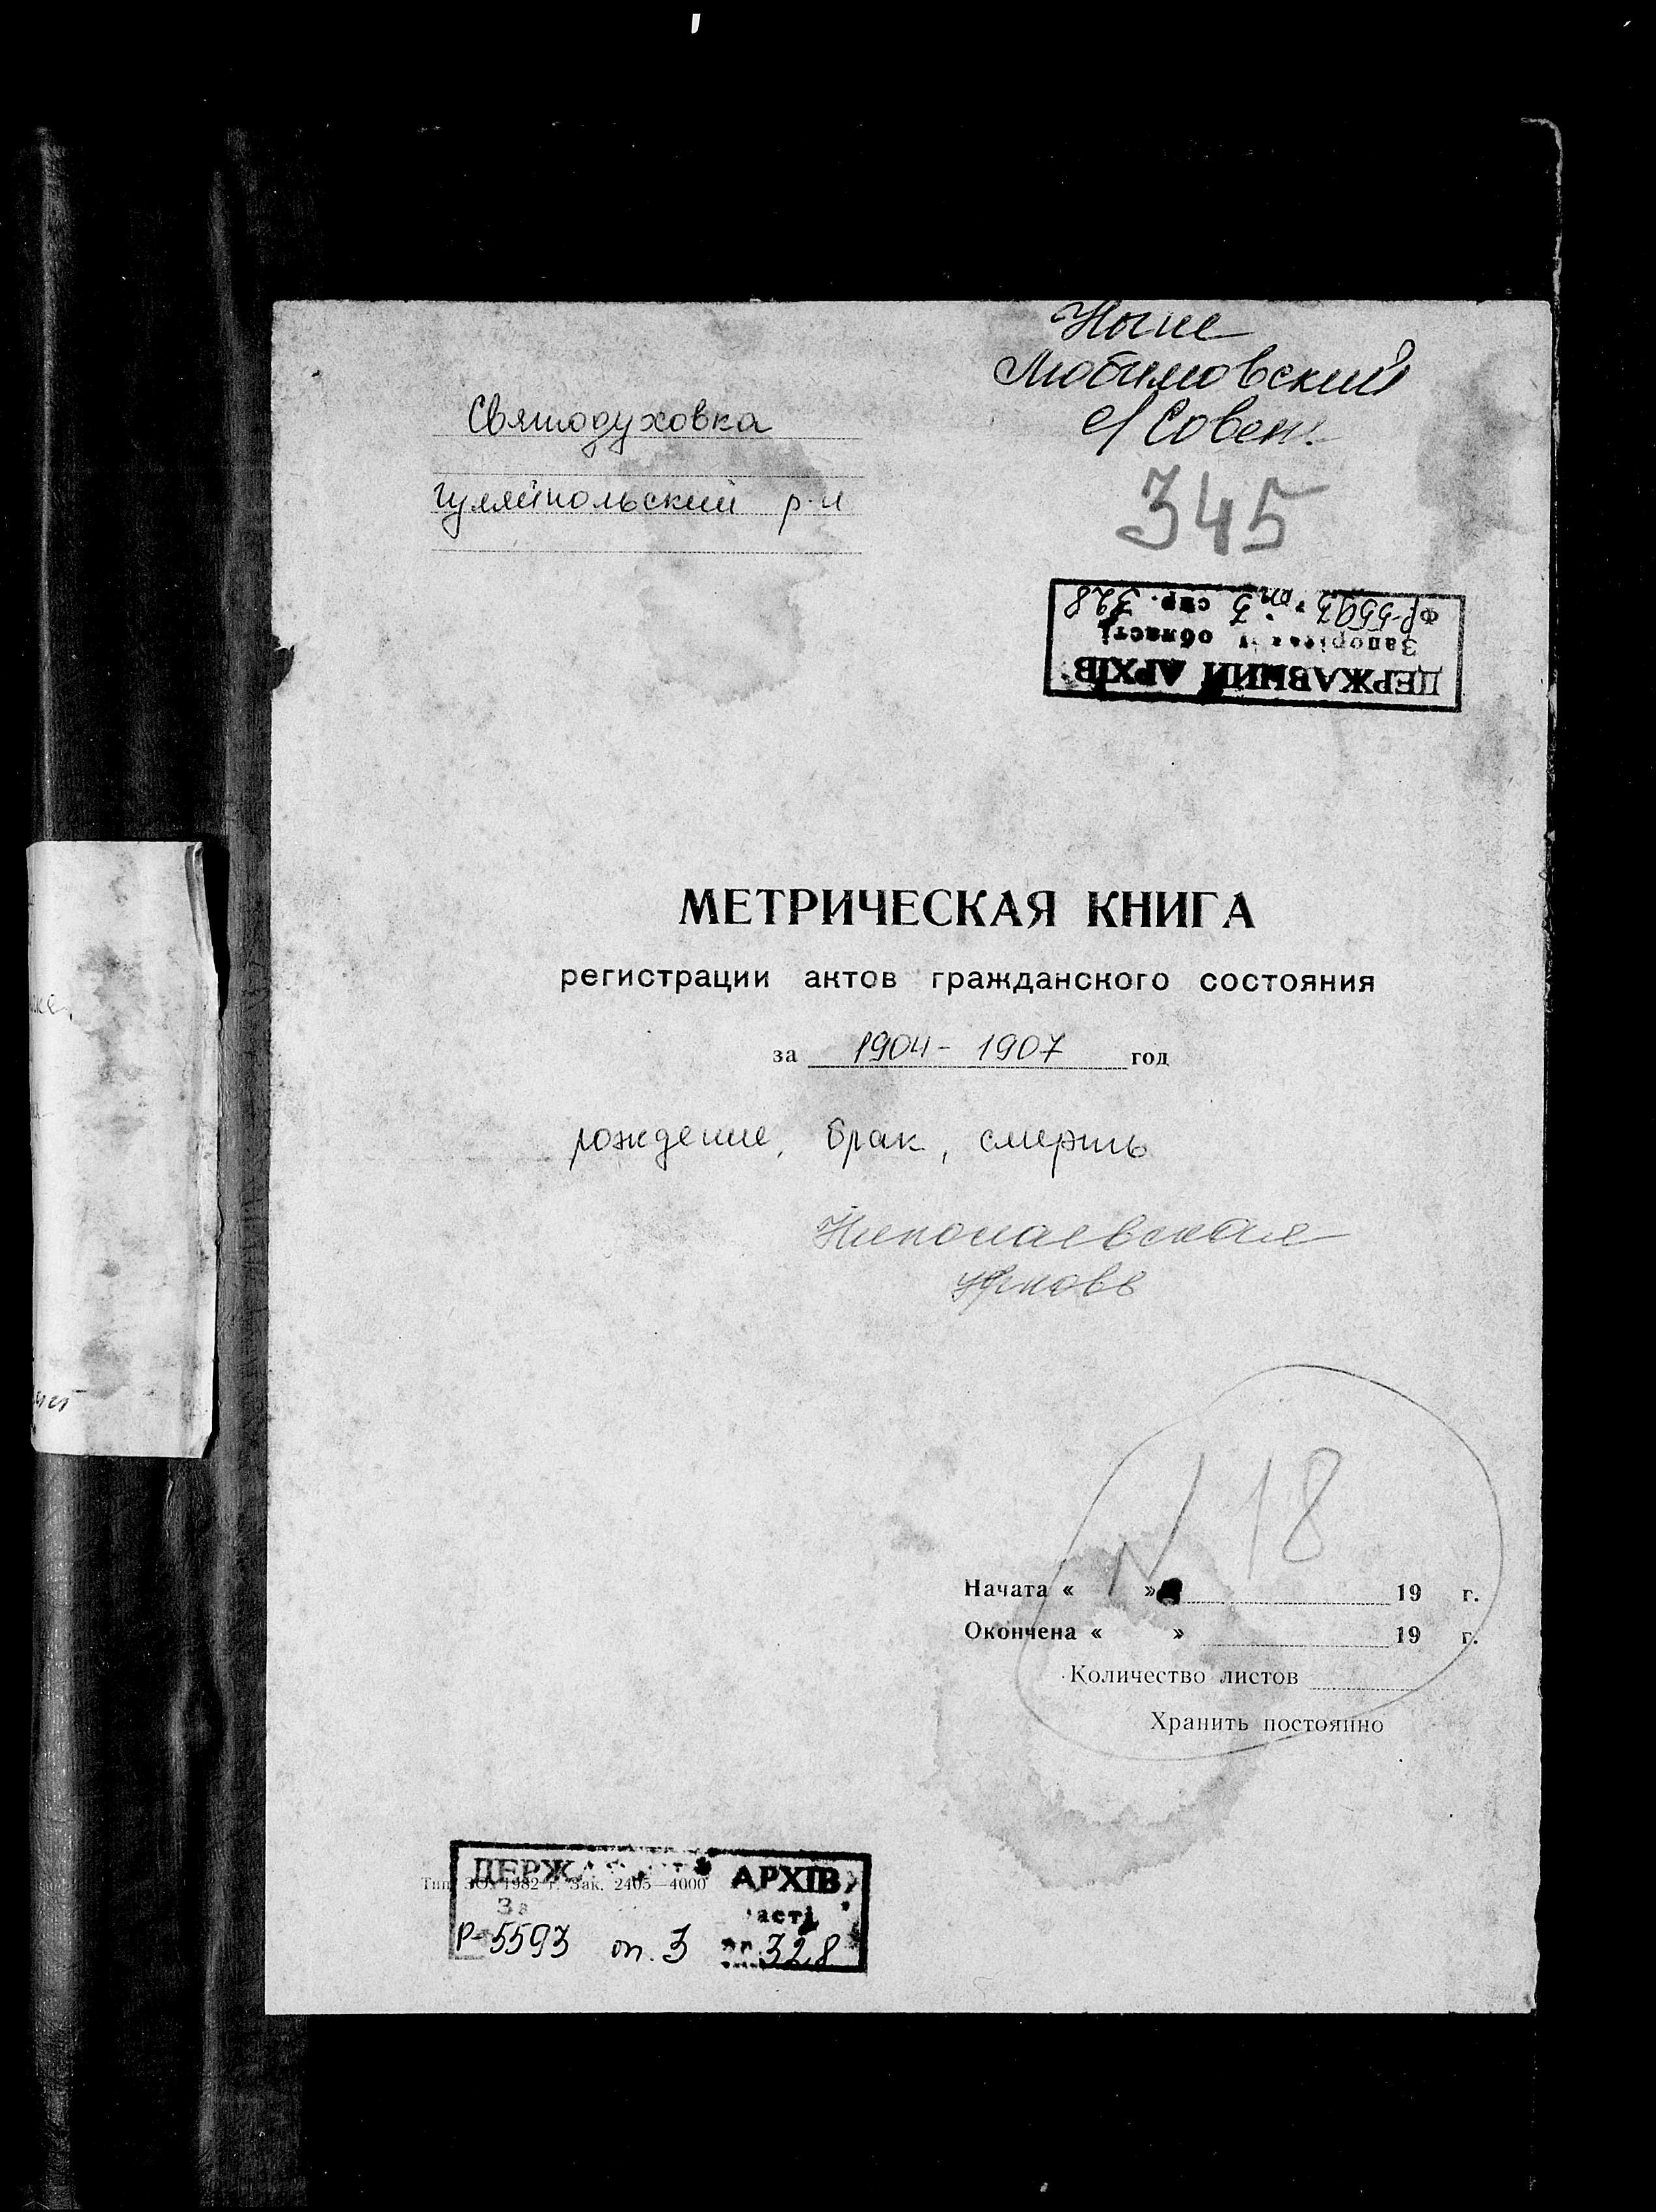 Ныне
Любимовский
с/Совет.
Святодуховка
Гуляйпольский р-н
345
Ф Р-5593 оп. 3 спр. 328
Запорізької області
ДЕРЖАВНИЙ АРХІВ
МЕТРИЧЕСКАЯ КНИГА
регистрации актов гражданского состояния
за 1904-1907 год
рождение, брак, смерть
Николаевская
церковь
N 18
Начата « » 19 г.
Окончена « » 19 г.
Количество листов
Хранить постоянно
ДЕРЖА АРХІВ
Тип. ЗО. 1982 г. Зак. 2405—4000
За асті
Р-5593 оп. 3 328